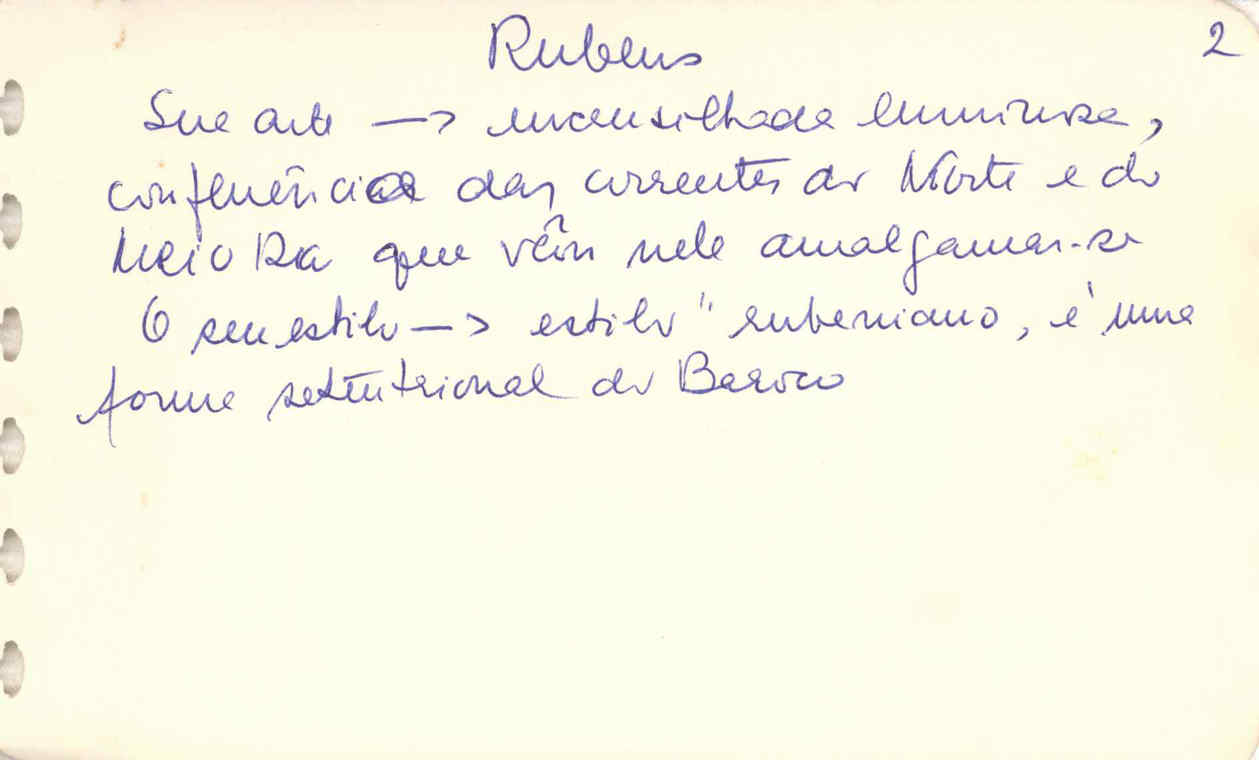 Rubens
2
Sua arte —> encruzilhada luminosa,
confluência das correntes do Norte e do
Meio Dia que vêm nele amalgamar-se
O seu estilo —> estilo " rubeniano, é uma
forma setentrional do Baroco